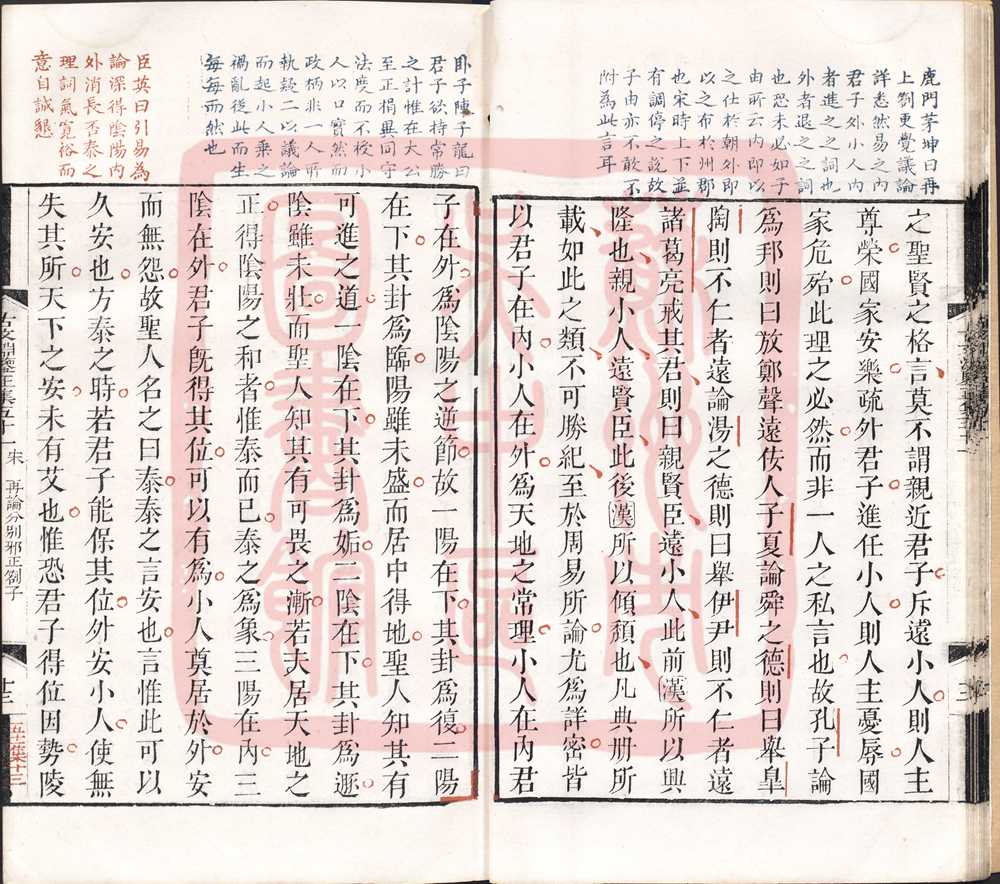 鹿門茅坤曰再
上劄更覺議論
詳悉然易之内
君子外小人内
者進之之詞也
外者退之之詞
也恐未必如子
由所云内即以
之仕於朝外即
以之布於州郡
也宋時上下並
有調停之說故
子由亦不敢不
附為此言耳
之聖賢之格言莫不謂親近君子斥遠小人則人主
尊榮國家安樂疏外君子進任小人則人主憂辱國
家危殆此理之必然而非一人之私言也故孔子論
爲邦則曰放鄭聲遠佞人子夏論舜之德則曰舉皐
陶則不仁者遠論湯之德則曰舉伊尹則不仁者遠
諸葛亮戒其君則曰親賢臣遠小人此前漢所以興
隆也親小人遠賢臣此後漢所以傾頹也凡典册所
載如此之類不可勝紀至於周易所論尤爲詳密皆
以君子在内小人在外爲天地之常理小人在内君
卧子陳子龍曰
君子欲持常勝
之計惟在大公
至正捐異同守
法度而不授小
人以口實然而
政柄非一人所
執疑二以議論
而起小人乘之
禍亂從此而生
每每而然也
臣英曰引易為
論深得陰陽内
外消長否泰之
理詞氣寬裕而
意自誠懇
子在外爲陰陽之逆節故一陽在下其卦爲復二陽
在下其卦爲臨陽雖未盛而居中得地聖人知其有
可進之道一陰在下其卦爲姤二陰在下其卦爲遯
陰雖未壯而聖人知其有可畏之漸若夫居天地之
正得陰陽之和者惟泰而已泰之爲象三陽在内三
陰在外君子旣得其位可以有爲小人奠居於外安
而無怨故聖人名之曰泰泰之言安也言惟此可以
久安也方泰之時若君子能保其位外安小人使無
失其所天下之安未有艾也惟恐君子得位因勢陵
古文淵鑒正集五十一 朱 再論分別邪正劄子
十三